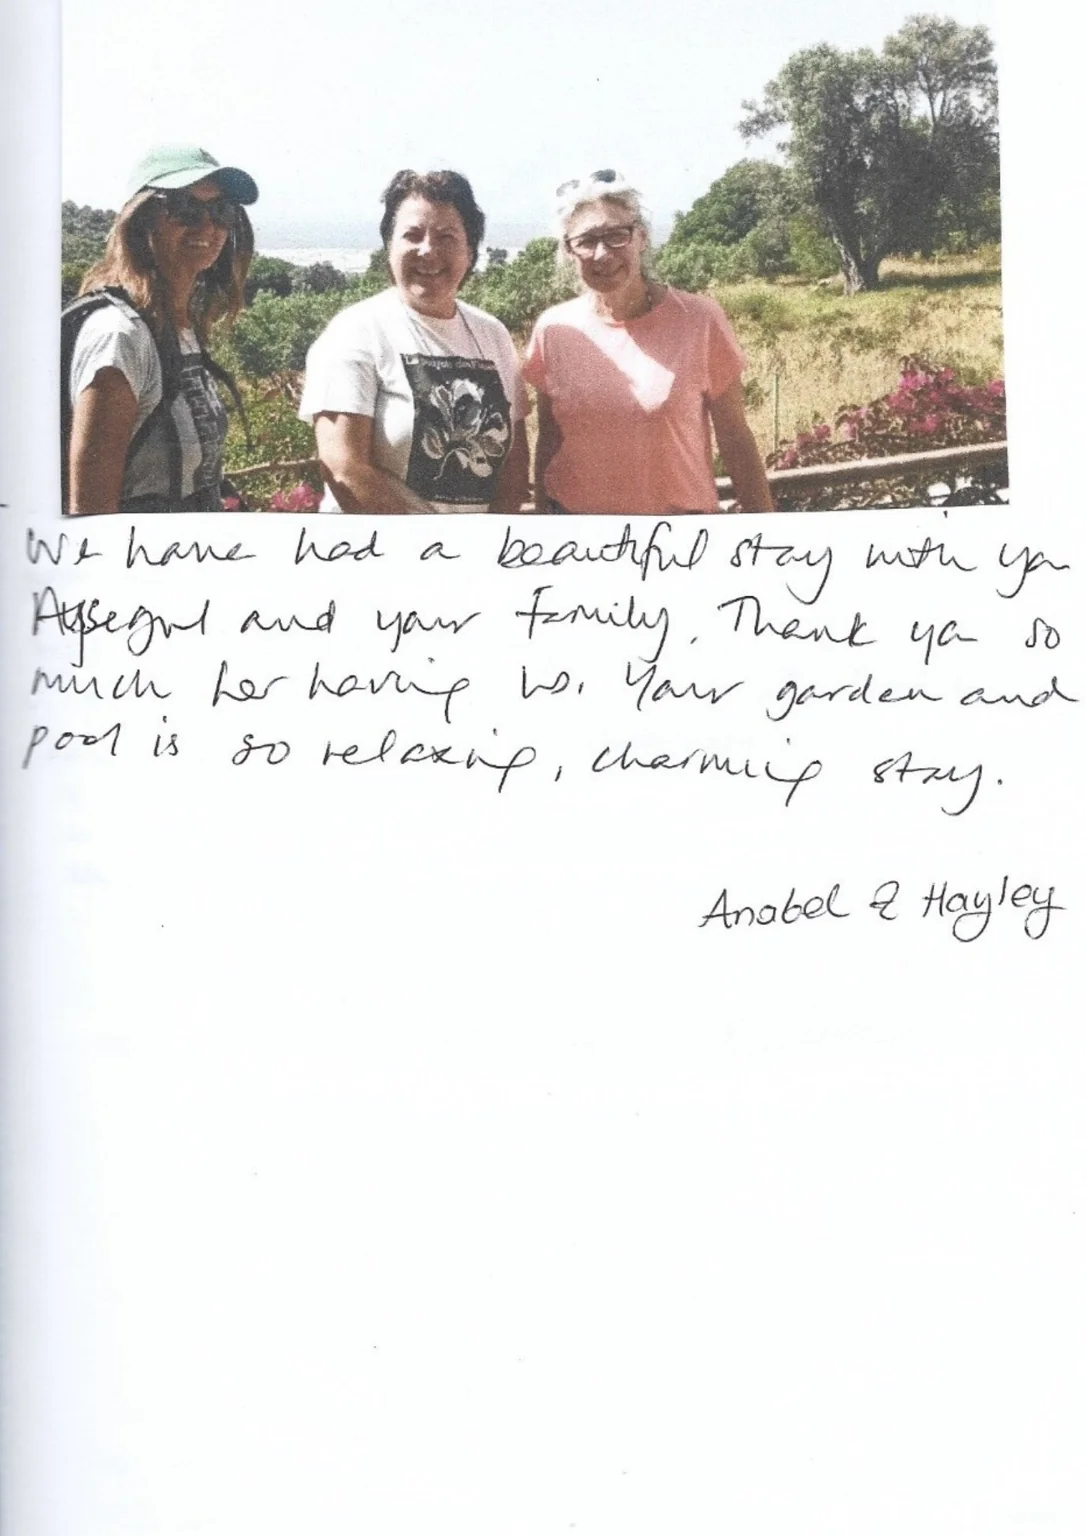 We have had a beautiful stay with you
Aysegul and your Family. Thank you so
much for having us. Your garden and
pool is so relaxing, charming stay.
Anabel & Hayley